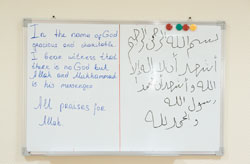 In the name of God
gracious and charitable.
I bear witness that
there is no God but
Allah and Mukhammad
is his messenger
All praises for
Allah.
بسم الله الرحمن الرحيم
أشهد أن لا إله إلا
الله وأشهد أن محمدا
رسول الله
والحمد لله